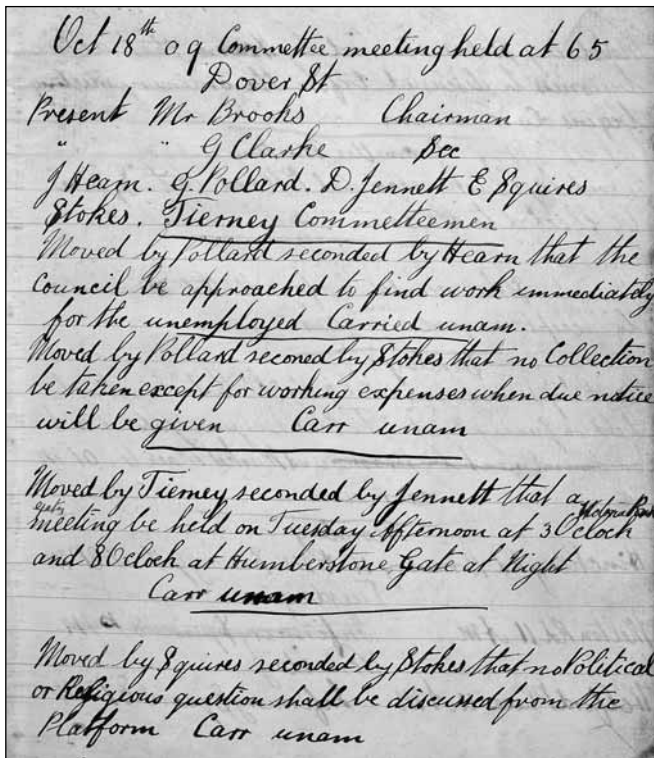 Oct 18th 09 Committee meeting held at 65
Dover St
Present Mr Brooks Chairman
" " G Clarke Sec
J Hearn. G. Pollard. D. Jennett E Squires
Stokes. Tierney Committeemen
Moved by Pollard seconded by Hearn that the
Council be approached to find work immediately
for the unemployed Carried unam.
Moved by Pollard seconed by Stokes that no Collection
be taken except for working expenses when due notice
will be given Carr unam
Moved by Tierney seconded by Jennett that a
meeting be held on Tuesday Afternoon at 3 Oclock
and 8 Oclock at Humberstone Gate at Night
Carr unam
Moved by Squires seconded by Stokes that no Political
or Religious question shall be discussed from the
Platform Carr unam